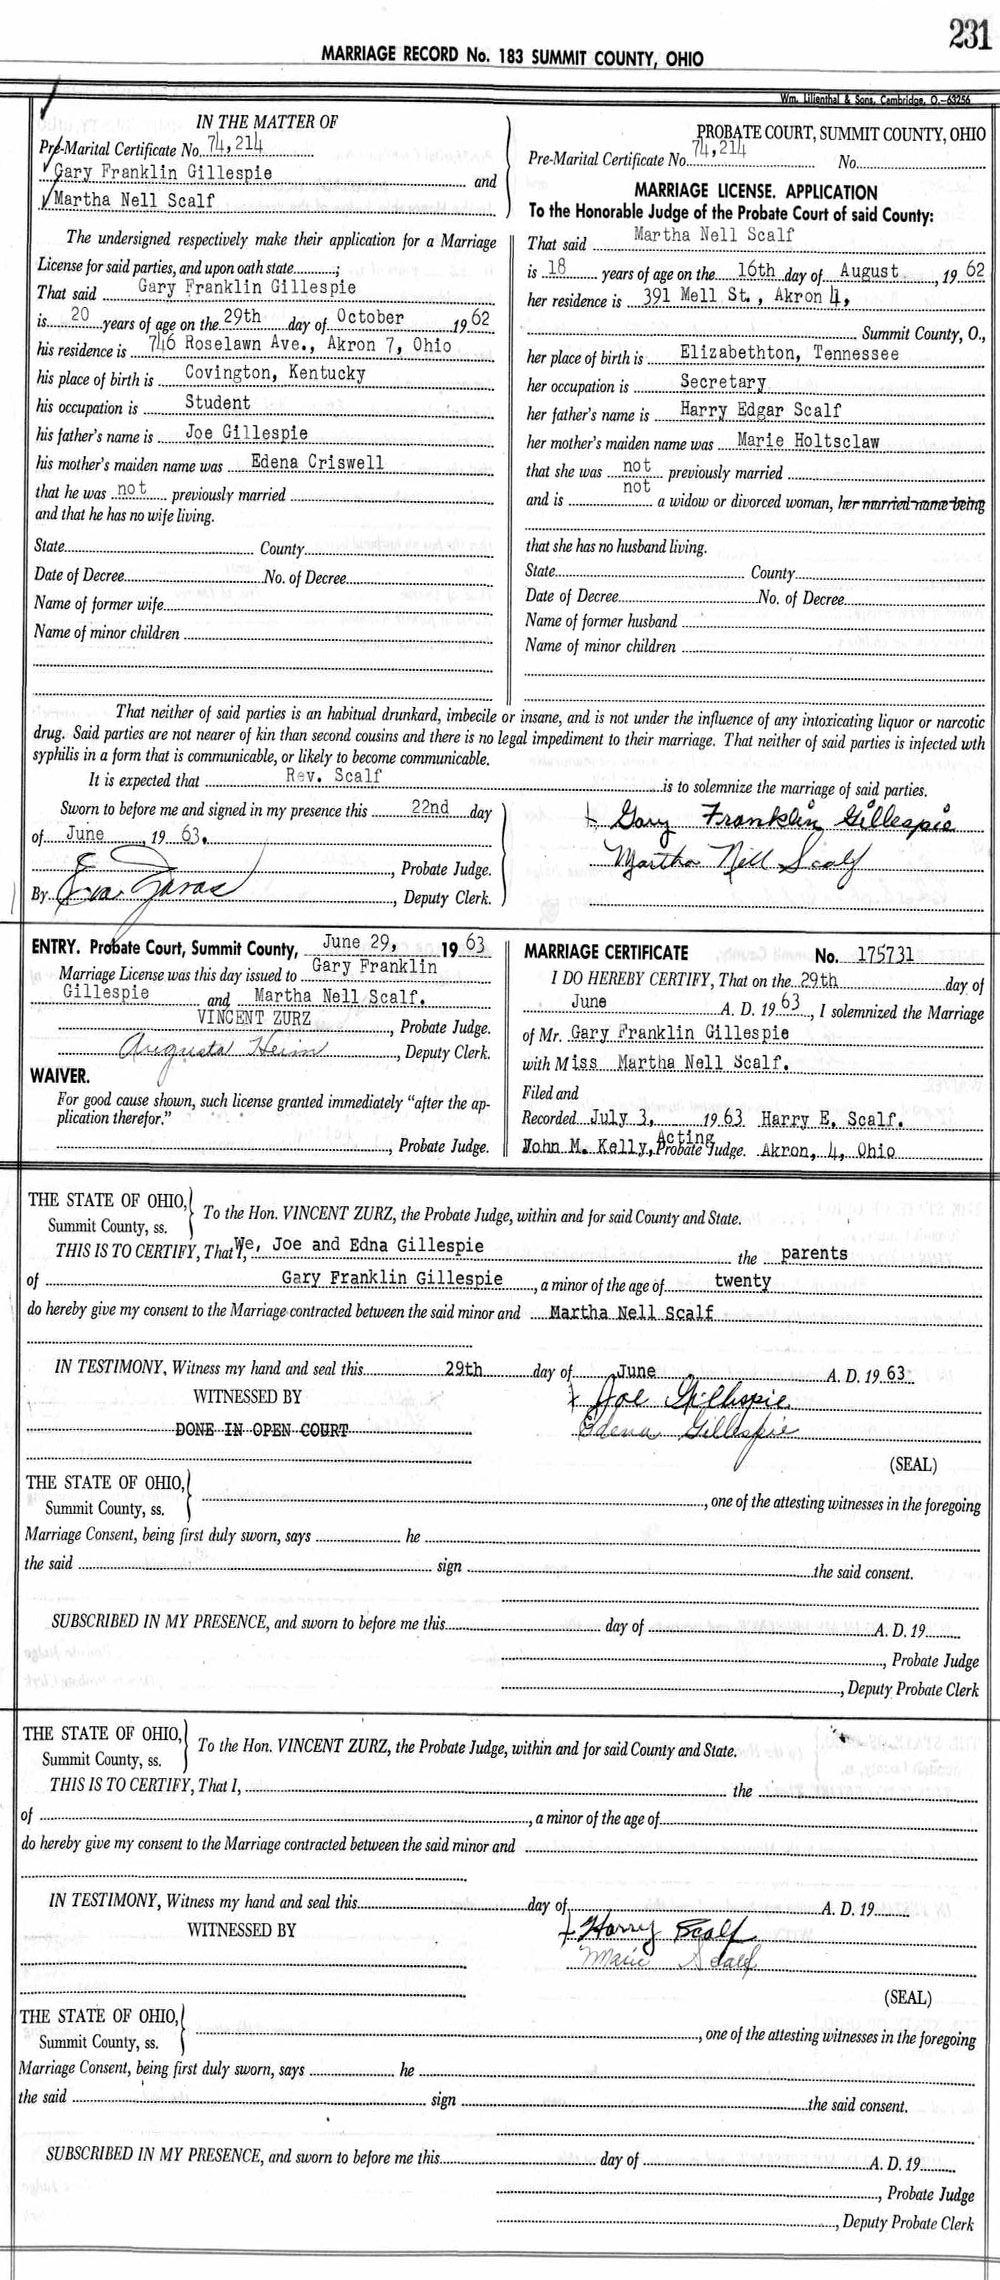 231
MARRIAGE RECORD No. 183 SUMMIT COUNTY, OHIO
Wm. Lilienthal & Sons, Cambridge, O.—63256
IN THE MATTER OF
Pre-Marital Certificate No. 74,214
Gary Franklin Gillespie and
Martha Nell Scalf
The undersigned respectively make their application for a Marriage
License for said parties, and upon oath state ;
That said Gary Franklin Gillespie
is 20 years of age on the 29th day of October 1962
his residence is 746 Roselawn Ave., Akron 7, Ohio
his place of birth is Covington, Kentucky
his occupation is Student
his father's name is Joe Gillespie
his mother's maiden name was Edena Criswell
that he was not previously married
and that he has no wife living.
State County
Date of Decree No. of Decree
Name of former wife
Name of minor children
PROBATE COURT, SUMMIT COUNTY, OHIO
Pre-Marital Certificate No. 74,214 No.
MARRIAGE LICENSE. APPLICATION
To the Honorable Judge of the Probate Court of said County:
That said Martha Nell Scalf
is 18 years of age on the 16th day of August, 1962
her residence is 391 Mell St., Akron 4,
Summit County, O.,
her place of birth is Elizabethton, Tennessee
her occupation is Secretary
her father's name is Harry Edgar Scalf
her mother's maiden name was Marie Holtsclaw
that she was not previously married
and is not a widow or divorced woman, her married name being
that she has no husband living.
State County
Date of Decree No. of Decree
Name of former husband
Name of minor children
That neither of said parties is an habitual drunkard, imbecile or insane, and is not under the influence of any intoxicating liquor or narcotic
drug. Said parties are not nearer of kin than second cousins and there is no legal impediment to their marriage. That neither of said parties is infected wth
syphilis in a form that is communicable, or likely to become communicable.
It is expected that Rev. Scalf is to solemnize the marriage of said parties.
Sworn to before me and signed in my presence this 22nd day
of June, 1963.
, Probate Judge.
By Eva , Deputy Clerk.
Gary Franklin Gillespie
Martha Nell Scalf
ENTRY. Probate Court, Summit County, June 29, 1963
Marriage License was this day issued to Gary Franklin
Gillespie and Martha Nell Scalf.
VINCENT ZURZ, Probate Judge.
Augusta Heim, Deputy Clerk.
WAIVER.
For good cause shown, such license granted immediately "after the ap-
plication therefor."
, Probate Judge.
MARRIAGE CERTIFICATE No. 175731
I DO HEREBY CERTIFY, That on the 29th day of
June A. D. 1963, I solemnized the Marriage
of Mr. Gary Franklin Gillespie
with Miss Martha Nell Scalf.
Filed and
Recorded July 3, 1963 Harry E. Scalf.
John M. Kelly, Acting Probate Judge. Akron, 4, Ohio
THE STATE OF OHIO,
Summit County, ss.
To the Hon. VINCENT ZURZ, the Probate Judge, within and for said County and State.
THIS IS TO CERTIFY, That I, We, Joe and Edna Gillespie the parents
of Gary Franklin Gillespie, a minor of the age of twenty
do hereby give my consent to the Marriage contracted between the said minor and Martha Nell Scalf
IN TESTIMONY, Witness my hand and seal this 29th day of June A. D. 1963
WITNESSED BY
Joe Gillespie
DONE IN OPEN COURT
Edena Gillespie
(SEAL)
THE STATE OF OHIO,
Summit County, ss.
, one of the attesting witnesses in the foregoing
Marriage Consent, being first duly sworn, says he
the said sign the said consent.
SUBSCRIBED IN MY PRESENCE, and sworn to before me this day of A. D. 19
, Probate Judge
, Deputy Probate Clerk
THE STATE OF OHIO,
Summit County, ss.
To the Hon. VINCENT ZURZ, the Probate Judge, within and for said County and State.
THIS IS TO CERTIFY, That I, the
of , a minor of the age of
do hereby give my consent to the Marriage contracted between the said minor and
IN TESTIMONY, Witness my hand and seal this day of A. D. 19
WITNESSED BY
Harry Scalf
Marie Scalf
(SEAL)
THE STATE OF OHIO,
Summit County, ss.
, one of the attesting witnesses in the foregoing
Marriage Consent, being first duly sworn, says he
the said sign the said consent.
SUBSCRIBED IN MY PRESENCE, and sworn to before me this day of A. D. 19
, Probate Judge
, Deputy Probate Clerk